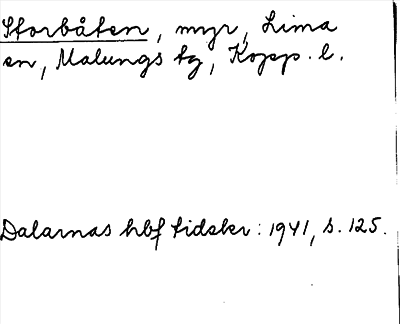 Storbåten, myr, Lima
sn, Malungs tg, Kopp. l.
Dalarnas hbf tidskr: 1941, s. 125.